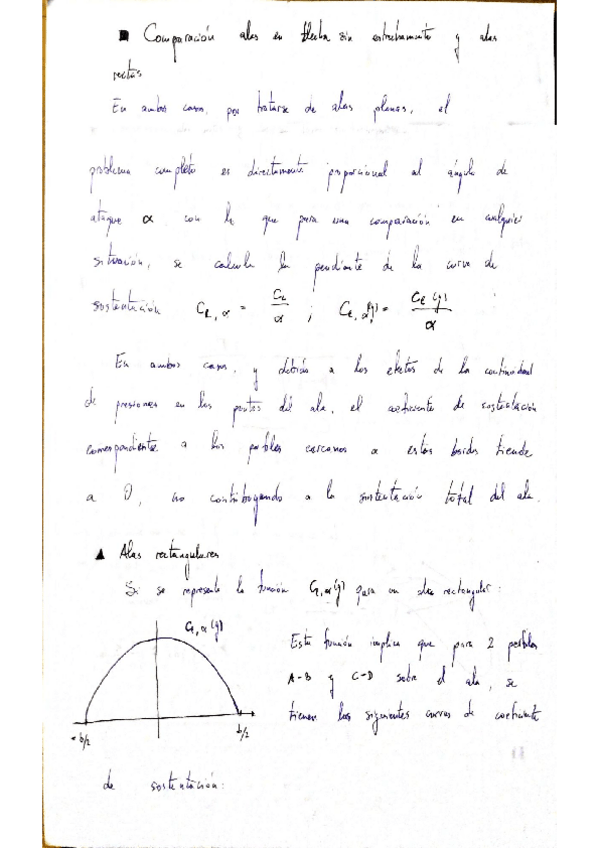 ■ Comparación alas en flecha sin estrechamiento y alas
rectas
En ambos casos, por tratarse de alas planas, el
problema completo es directamente proporcional al ángulo de
ataque α con lo que para una comparación en cualquier
situación, se calcula la pendiente de la curva de
sustentación C_{L,α} = C_L/α ; C_{l,α}(y) = C_l(y)/α
En ambos casos, y debido a los efectos de la continuidad
de presiones en las puntas del ala, el coeficiente de sustentación
correspondiente a los perfiles cercanos a estos bordes tiende
a 0, no contribuyendo a la sustentación total del ala.
▲ Alas rectangulares
Si se representa la función C_{l,α}(y) para un ala rectangular:
C_{l,α}(y)
-b/2
b/2
Esta función implica que para 2 perfiles
A-B y C-D sobre el ala, se
tienen las siguientes curvas de coeficiente
de sustentación: